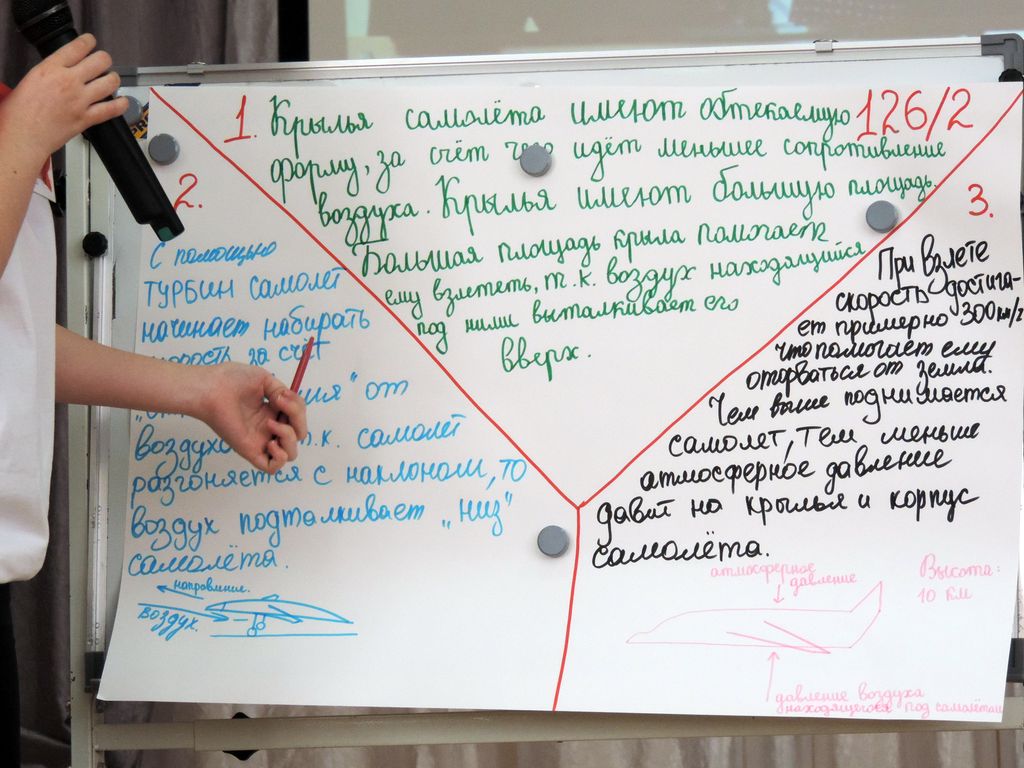 1. Крылья самолёта имеют обтекаемую 126/2
форму, за счёт чего идёт меньшее сопротивление
воздуха. Крылья имеют большую площадь.
Большая площадь крыла помогает
ему взлететь, т.к. воздух находящийся
под ними выталкивает его
вверх.
2.
С помощью
турбин самолёт
начинает набирать
скорость за счёт
от
воздуха т.к. самолёт
разгоняется с наклоном, то
воздух подталкивает „низ"
самолёта.
направление.
воздух.
3.
При взлете
скорость достига-
ет примерно 300 км/г
что помогает ему
оторваться от земла.
Чем выше поднимается
самолет, тем меньше
атмосферное давление
давит на крылья и корпус
самолёта.
атмосферное
давление
Высота:
10 км
давление воздуха
находящегося под самолётам